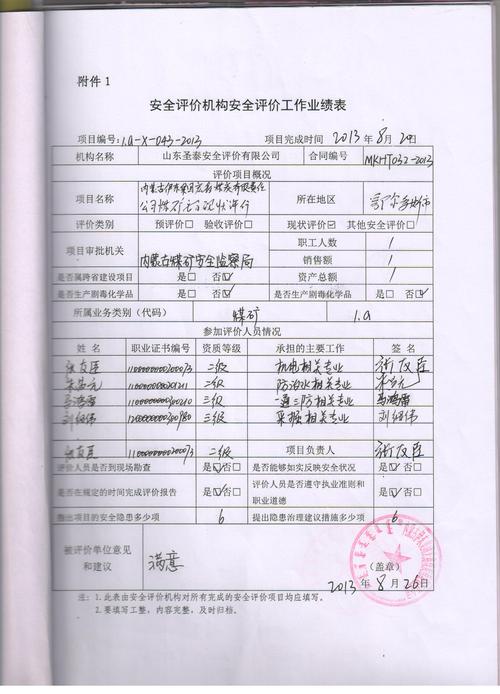 附件 1
安全评价机构安全评价工作业绩表
项目编号:1.a-X-043-2013 项目完成时间 2013年8月20
机构名称 山东圣泰安全评价有限公司 合同编号 MKHT032-2013
评价项目概况
项目名称 内蒙古伊东集团 煤炭有限责任
公司煤矿安全现状评价 所在地区 鄂尔多斯市
评价类别 预评价□ 验收评价□ 现状评价☑ 其他安全评价□
项目审批机关 内蒙古煤矿安全监察局 职工人数 1
销售额 1
是否属跨省建设项目 是□ 否☑ 资产总额 1
是否生产剧毒化学品 是□ 否☑ 是否生产剧毒化学品 是□ 否☑
所属业务类别(代码) 煤矿 1.a
参加评价人员情况
姓 名 职业证书编号 资质等级 承担的主要工作 签 名
张友臣 1100000000200073 二级 机电相关专业 张友臣
1100000000201211 二级 防治水相关专业
马鸿雷 1100000000300210 三级 一通三防相关专业 马鸿雷
刘继伟 1200000000300980 三级 采掘相关专业 刘继伟
张友臣 1100000000200073 二级 项目负责人 张友臣
评价人员是否到现场勘查 是☑否□ 是否能够如实反映安全状况 是☑否□
是否在规定的时间完成评价报告 是☑否□ 评价人员是否遵守执业准则和
职业道德 是☑否□
提出项目的安全隐患多少项 6 提出隐患治理建议措施多少项 6
被评价单位意见
和建议 满意
(盖章)
2013年8月26日
注:1.此表由安全评价机构对所有完成的安全评价项目均应填写。
2.要填写工整,内容完整,及时归档。